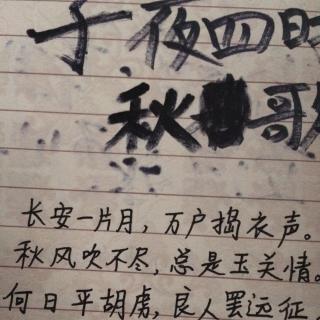 子夜四时
秋歌
长安一片月，万户捣衣声。
秋风吹不尽，总是玉关情。
何日平胡虏，良人罢远征。